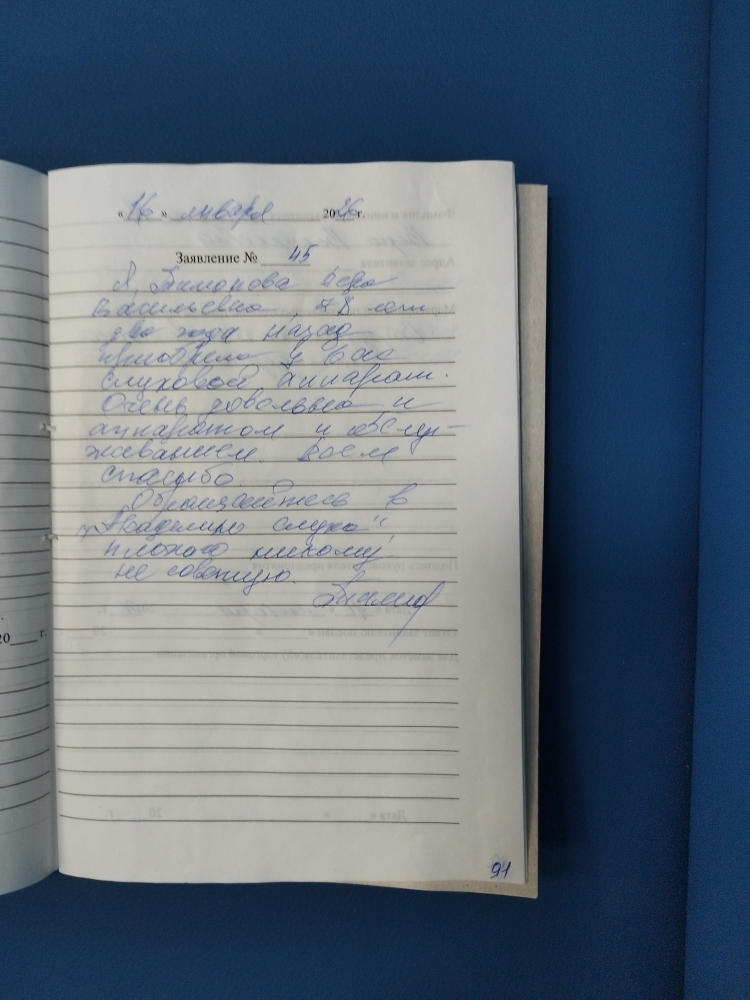 « 16 » января 2026 г.
Заявление № 45
Я, Васильевна, 78 лет
два года назад
приобрела у Вас
слуховой аппарат.
Очень довольна и
аппаратом и обслу-
живанием. Всем
спасибо.
Обращайтесь в
„Академию слуха",
плохого никому
не советую.
20 г.
91